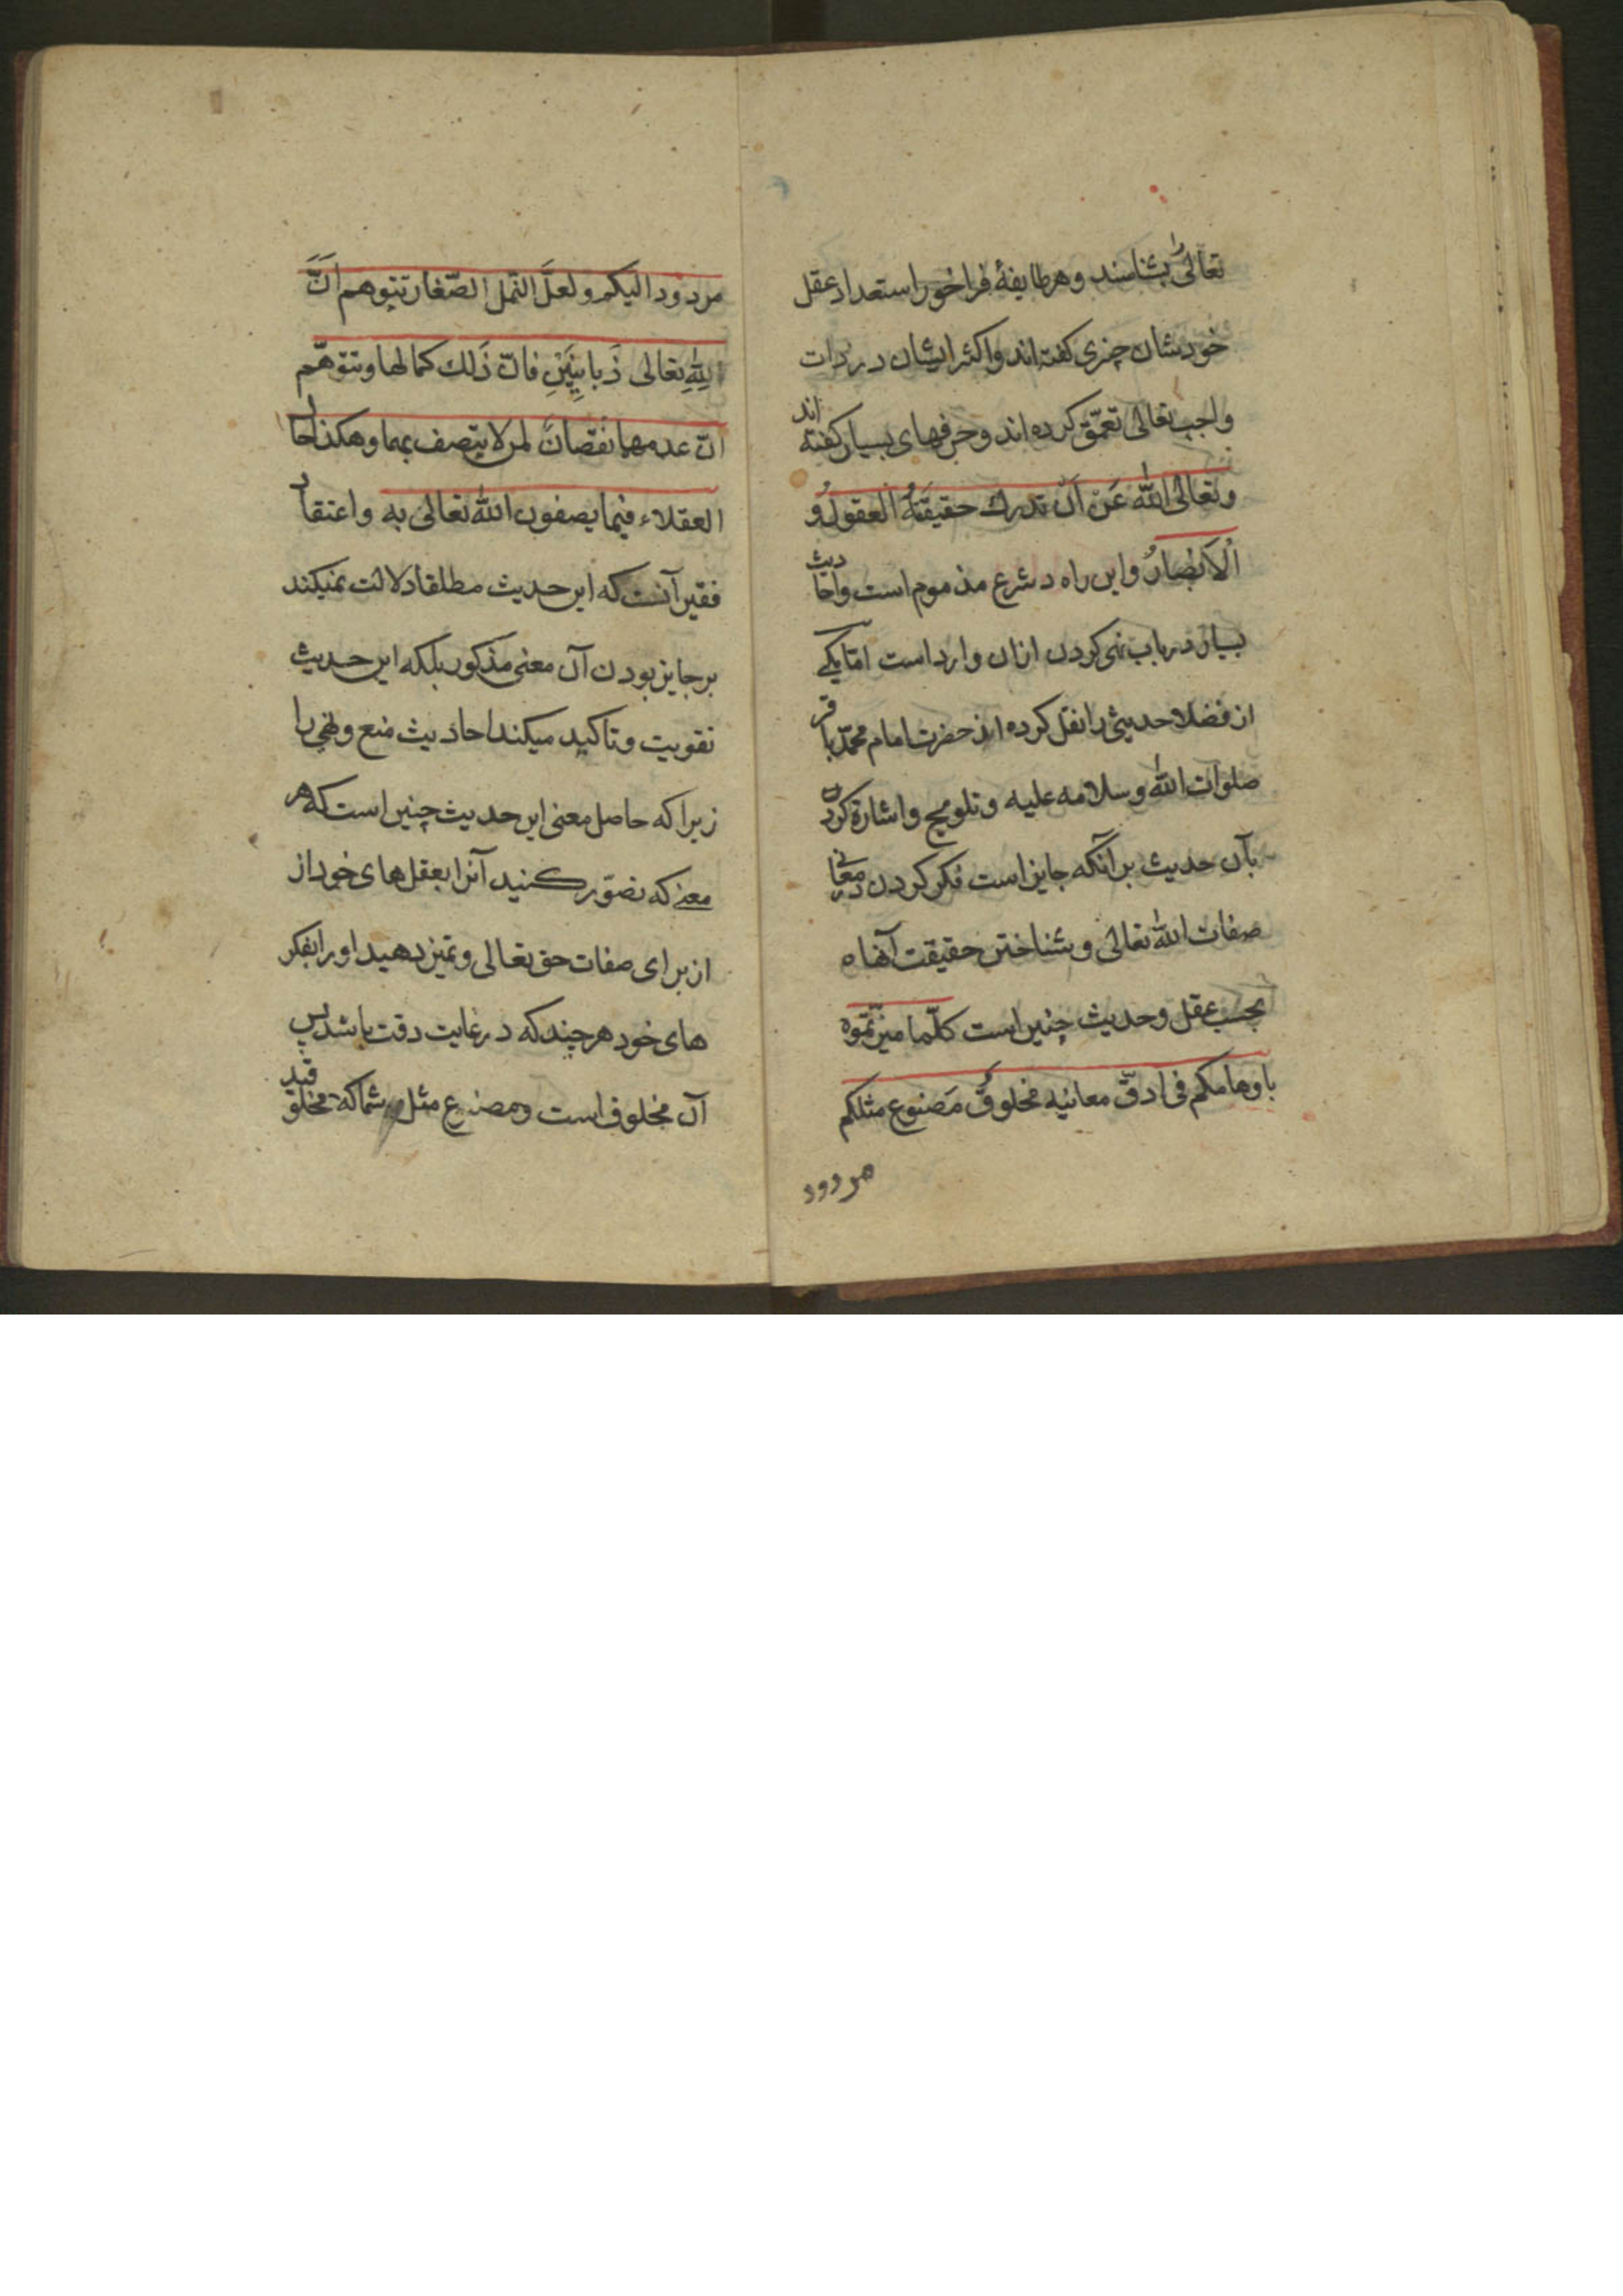 تعالی را بشناسند و هر طایفهٔ فراخور استعداد عقل
خودشان چیزی کفته‌اند و اکثر ایشان در ذات
واجب تعالی تعمّق کرده اند و حرفهای بسیار کفته اند
و تعالی اللّه عَن اَن تدرك حقیقَتَهُ العقولُ و
الْاَبْصارُ و این راه در شرع مذموم است و احادیث
بسیار در باب نهی کردن ازان وارد است امّا یکی
از فضلا حدیثی را نقل کرده از حضرت امام محمّد باقر
صلوات اللّه و سلامه علیه و تلویح و اشارة کردن
بآن حدیث بر آنکه جایز است فکر کردن در معانی
صفات اللّه تعالی و شناختن حقیقت آنها
بحسب عقل و حدیث چنین است کلّما میّزتموه
باوهامکم فی ادقّ معانیه مخلوقٌ مَصنوع مثلکم
مردود
مردود الیکم و لعلَّ النّمل الصّغار تتوهم اَنَّ
لِلّهِ تعالی زَبانِیَتَیْنِ فانّ ذَلك کمالها و تتوهّم
انّ عدمهما نقصانٌ لمن لا یتصف بهما و هکذا حال
العقلاء فیما یصفون اللّه تعالی به و اعتقاد
فقیر آنست که این حدیث مطلقا دلالت نمیکند
بر جایز بودن آن معنی مذکور بلکه این حدیث
تقویت و تاکید میکند احادیث منع و نهی را
زیرا که حاصل معنی این حدیث چنین است که هر
معنی که تصوّر کنید آنرا بعقلهای خود از
از برای صفات حق تعالی و تمیز دهید او را بفکر
های خود هر چند که در غایت دقت باشد پس
آن مخلوق است و مصنوع مثل شما که مخلوقید